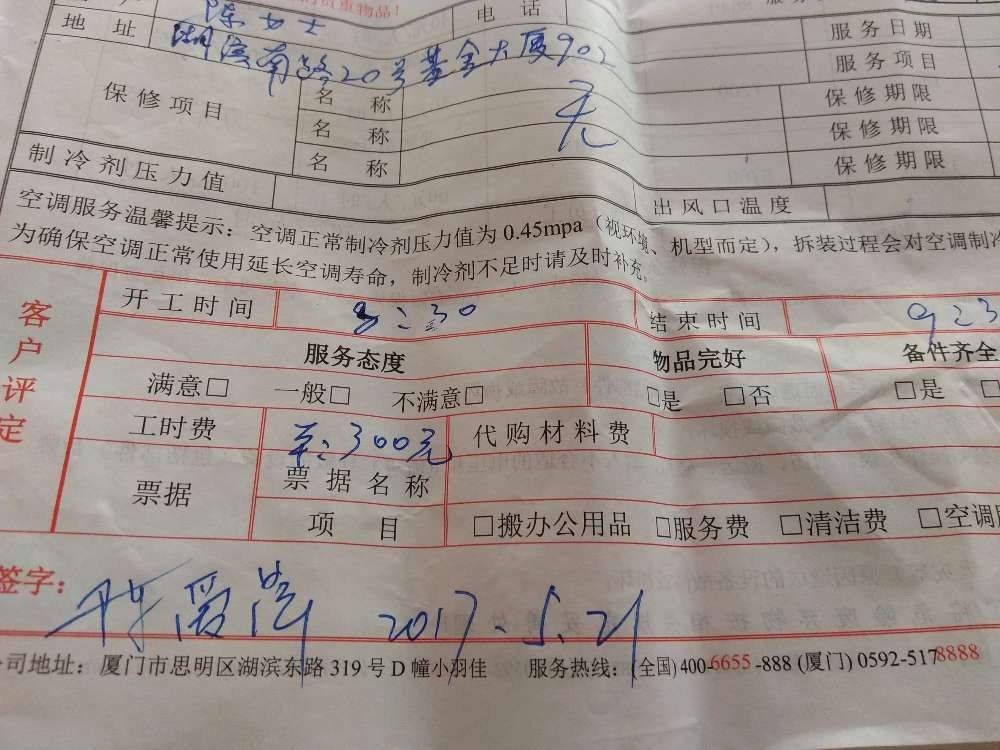 贵重物品！
陈女士 电话
地址 湖滨南路20号基金大厦902 服务日期
服务项目
保修项目 名称 无 保修期限
名称 保修期限
名称 保修期限
制冷剂压力值 出风口温度
空调服务温馨提示：空调正常制冷剂压力值为0.45mpa（视环境、机型而定），拆装过程会对空调制冷
为确保空调正常使用延长空调寿命，制冷剂不足时请及时补充。
客户评定
开工时间 8:30 结束时间 9:3
服务态度 物品完好 备件齐全
满意□ 一般□ 不满意□ □是 □否 □是
工时费 车:300元 代购材料费
票据 票据名称
项目 □搬办公用品 □服务费 □清洁费 □空调
签字： 2017.5.21
司地址：厦门市思明区湖滨东路319号D幢小羽佳 服务热线：(全国) 400-6655-888 (厦门) 0592-5178888